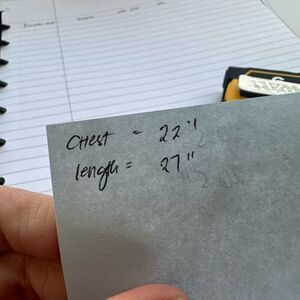 Chest = 22"
length = 27"